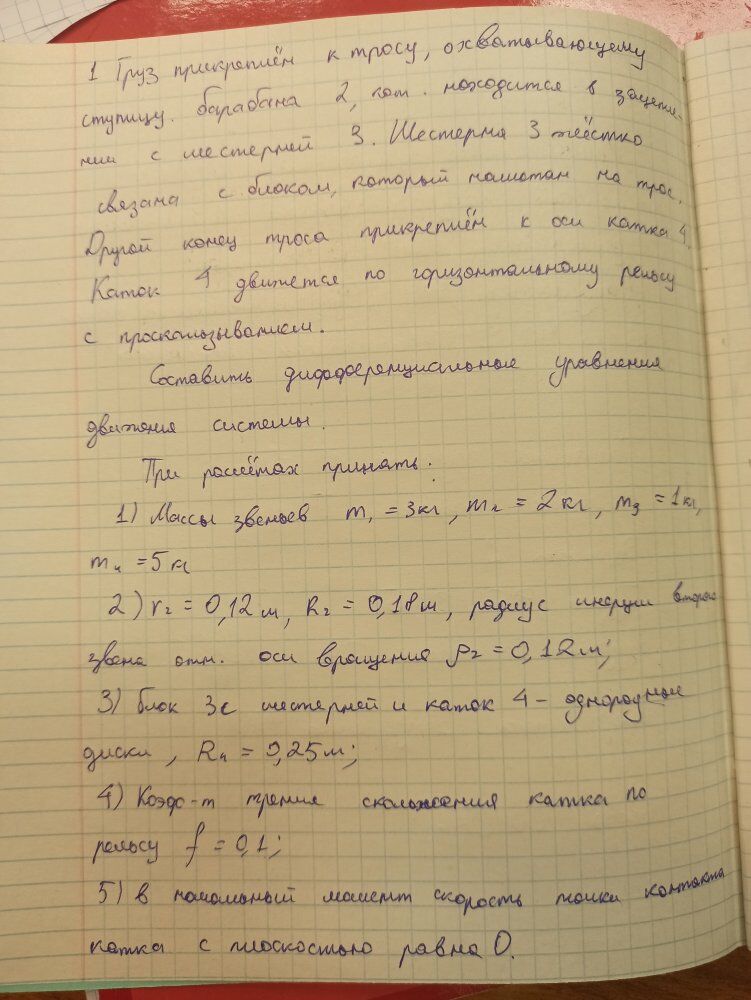 1 Груз прикреплён к тросу, охватывающему
ступицу барабана 2, кот. находится в зацепле-
нии с шестерней 3. Шестерня 3 жёстко
связана с блоком, который намотан на трос.
Другой конец троса прикреплён к оси катка 4.
Каток 4 движется по горизонтальному рельсу
с проскальзыванием.
Составить дифференциальные уравнения
движения системы.
При расчётах принять:
1) Массы звеньев m₁ = 3кг, m₂ = 2кг, m₃ = 1кг,
m₄ = 5кг
2) r₂ = 0,12м, R₂ = 0,18м, радиус инерции второго
звена отн. оси вращения ρ₂ = 0,12м;
3) блок 3 с шестерней и каток 4 - однородные
диски, R₄ = 0,25м;
4) Коэф-т трения скольжения катка по
рельсу f = 0,1;
5) в начальный момент скорость точки контакта
катка с плоскостью равна 0.